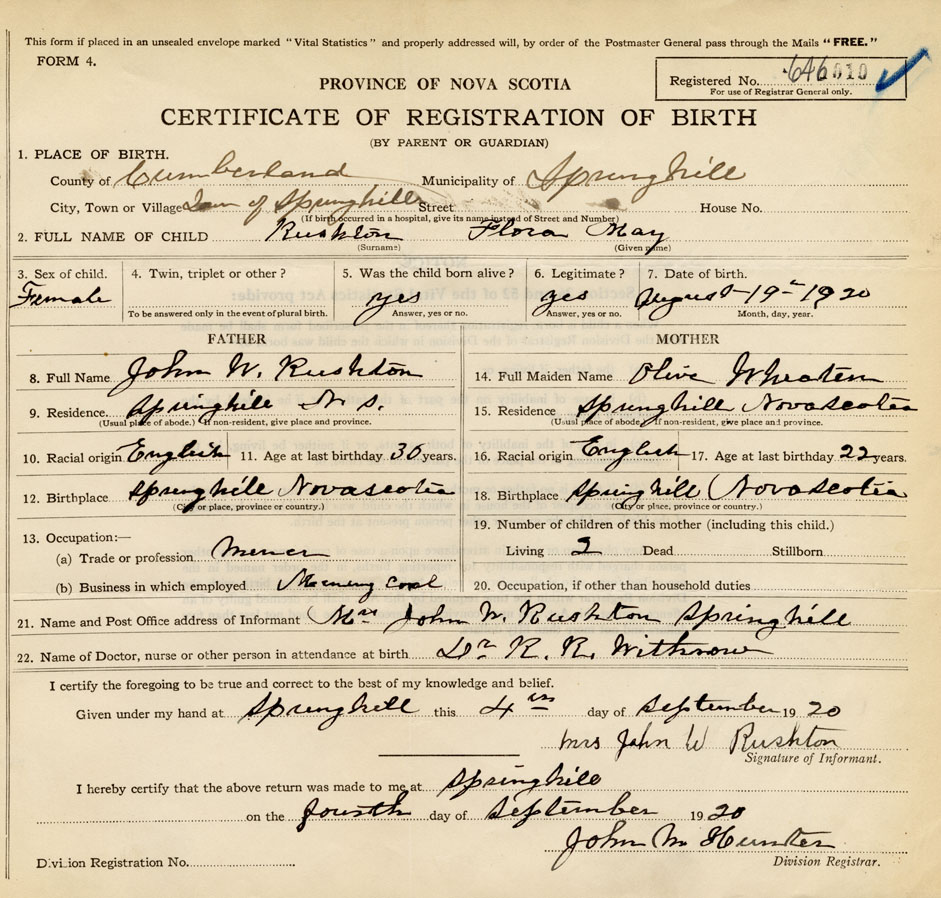 This form if placed in an unsealed envelope marked "Vital Statistics" and properly addressed will, by order of the Postmaster General pass through the Mails "FREE."
FORM 4.
Registered No. 646010
For use of Registrar General only.
PROVINCE OF NOVA SCOTIA
CERTIFICATE OF REGISTRATION OF BIRTH
(BY PARENT OR GUARDIAN)
1. PLACE OF BIRTH.
County of Cumberland Municipality of Springhill
City, Town or Village Town of Springhill Street House No.
(If birth occurred in a hospital, give its name instead of Street and Number)
2. FULL NAME OF CHILD Rushton Flora May
(Surname) (Given name)
3. Sex of child. 4. Twin, triplet or other ? 5. Was the child born alive ? 6. Legitimate ? 7. Date of birth.
Female yes yes August 19th 1920
To be answered only in the event of plural birth. Answer, yes or no. Answer, yes or no. Month, day, year.
FATHER MOTHER
8. Full Name John W. Rushton 14. Full Maiden Name Olive Wheaton
9. Residence Springhill N. S. 15. Residence Springhill Novascotia
(Usual place of abode.) (If non-resident, give place and province. (Usual place of abode.) If non-resident, give place and province.
10. Racial origin English 11. Age at last birthday 30 years. 16. Racial origin English 17. Age at last birthday 22 years.
12. Birthplace Springhill Novascotia 18. Birthplace Springhill Novascotia
(City or place, province or country.) (City or place, province or country.)
19. Number of children of this mother (including this child.)
13. Occupation:—
(a) Trade or profession Mener Living 2 Dead Stillborn
(b) Business in which employed coal 20. Occupation, if other than household duties
21. Name and Post Office address of Informant Mrs John W. Rushton Springhill
22. Name of Doctor, nurse or other person in attendance at birth Dr R. R. Withrow
I certify the foregoing to be true and correct to the best of my knowledge and belief.
Given under my hand at Springhill this 4 day of September 1920
Mrs John W Rushton
Signature of Informant.
I hereby certify that the above return was made to me at Springhill
on the fourth day of September 1920
John M Hunter
Division Registrar.
Division Registration No.